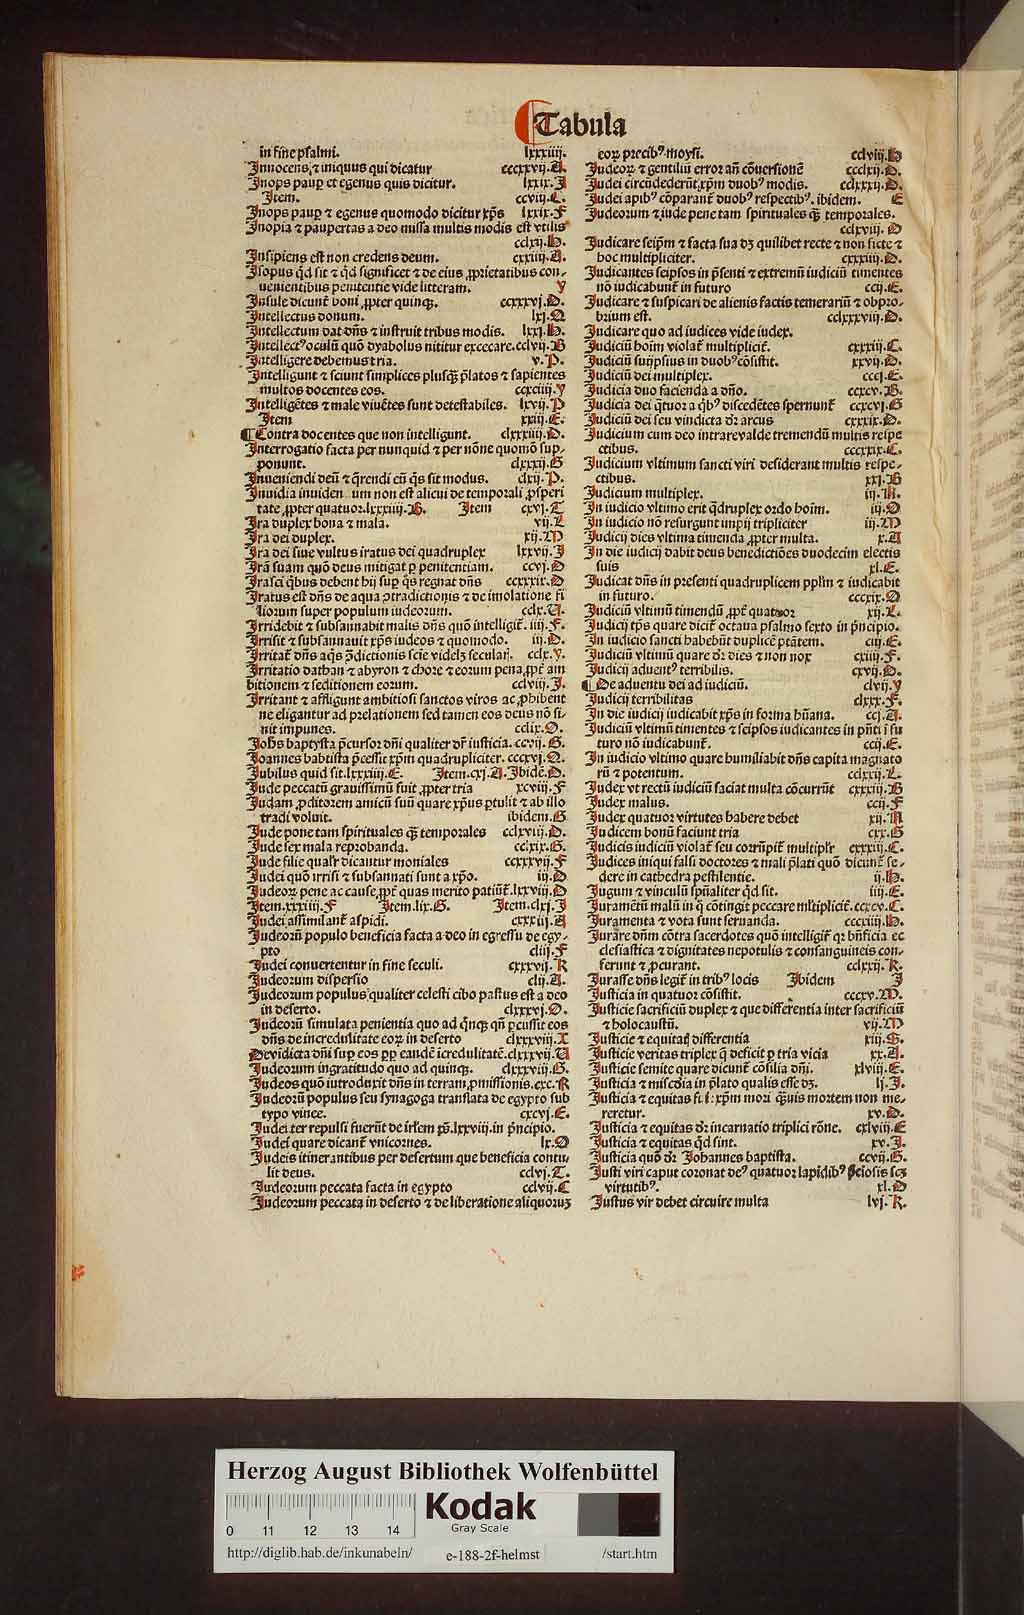 Tabula
in fine psalmi. lxxxiiij.
Innocens, ⁊ iniquus qui dicatur cccxxvij.A.
Inops paup et egenus quis dicitur. lxxix.I
Item. ccviij.C.
Inops paup ⁊ egenus quomodo dicitur xp̄s lxxix.F
Inopia ⁊ paupertas a deo missa multis modis est vtilis
cclxij.H.
Insipiens est non credens deum. cxxiiij.A.
Isopus qd sit ⁊ qd significet ⁊ de eius ꝓprietatibus con-
uenientibus penitentie vide litteram. Y
Insule dicunt̄ boni ꝓpter quinqꝫ. ccxxxvj.D.
Intellectus donum. lxj.Q
Intellectum dat dn̄s ⁊ instruit tribus modis. lxxj.H.
Intellectꝰ oculū quō dyabolus nititur excecare. cclvij.B
Intelligere debemus tria. v.P.
Intelligunt ⁊ sciunt simplices plusqꝫ p̄latos ⁊ sapientes
multos docentes eos. ccxciiij.Y
Intelligētes ⁊ male viuētes sunt detestabiles. lxvij.P
Item xxiij.E.
¶ Contra docentes que non intelligunt. clxxxiiij.D.
Interrogatio facta per nunquid ⁊ per nōne quomō sup-
ponunt. clxxxij.G
Inueniendi deū ⁊ q̄rendi eū q̄s sit modus. clxij.P.
Inuidia inuiden um non est alicui de temporali ꝓsperi
tate ꝓpter quatuor.lxxxiiij.B. Item cxvj.T
Ira duplex bona ⁊ mala. vij.L
Ira dei duplex. xij.M
Ira dei siue vultus iratus dei quadruplex lxxvij.I
Irā suam quō deus mitigat p penitentiam. ccvj.D
Irasci qbus debent hij sup qs regnat dn̄s ccxxxix.D
Iratus est dn̄s de aqua ↄtradictionis ⁊ de imolatione fi
liorum super populum iudeorum. cclx.U.
Irridebit ⁊ subsannabit malis dn̄s quō intelligit̄. iiij.F.
Irrisit ⁊ subsannauit xp̄s iudeos ⁊ quomodo. iij.D.
Irritatio dathan ⁊ abyron ⁊ chore ⁊ eorum pena ꝓpt̄ am
bitionem ⁊ seditionem eorum. cclviij.I.
Irritant ⁊ affligunt ambitiosi sanctos viros ac ꝓhibent
ne eligantur ad prelationem sed tamen eos deus nō si-
nit impunes. cclix.O.
Joh̄s baptysta p̄cursor dn̄i qualiter dr̄ iusticia. ccvij.G.
Joannes babtista p̄cessit xp̄m quadrupliciter. cccxvj.Q.
Jubilus quid sit.lxxxiiij.E. Item.cxj.A.Ibidē.D.
Jude peccatū grauissimū fuit ꝓpter tria xcviij.F
Judam ꝓditorem amicū suū quare xp̄us ptulit ⁊ ab illo
tradi voluit. ibidem.G
Jude pone tam spirituales qꝫ temporales cclxviij.D.
Jude sex mala reprobanda. cclxix.G.
Jude filie qualr̄ dicantur moniales ccxxxvij.F
Judei quō irrisi ⁊ subsannati sunt a xp̄o. iij.D
Judeoꝝ pene ac cause ꝓpt̄ quas merito patiūt̄.lxxviij.D
Item.xxxiiij.F Item.lix.G. Item.clxj.I
Judei assimilant̄ aspidi. cxxxiij.A
Judeorū populo beneficia facta a deo in egressu de egy-
pto cliij.F
Judei conuertentur in fine seculi. cxxxvij.K
Judeorum dispersio clij.A.
Judeorum populus qualiter celesti cibo pastus est a deo
in deserto. clxxxvj.O.
Judeorū simulata penientia quo ad qnqꝫ qn̄ pcussit eos
dn̄s de incredulitate eoꝝ in deserto clxxxviij.X
De vidicta dn̄i sup eos pp eandē icredulitatē.clxxxvij.U
Judeorum ingratitudo quo ad quinqꝫ. clxxxviij.G.
Judeos quō introduxit dn̄s in terram ꝓmissionis.cxc.R
Judeorū populus seu synagoga translata de egypto sub
typo vince. cxcvj.E.
Judei ter repulsi fuerūt de irl̄em xp̄.lxxviij.in p̄ncipio.
Judei quare dicant̄ vnicornes. lx.O
Judeis itinerantibus per desertum que beneficia contu
lit deus. cclvj.T.
Judeorum peccata facta in egypto cclvij.C
Judeorum peccata in deserto ⁊ de liberatione aliquoruꝫ
eoꝝ precibꝰ moysi. cclviij.H
Judeoꝝ ⁊ gentiliū error an̄ cōuersionē ccclxij.D.
Judei circūdederūt xp̄m duobꝰ modis. cclxxxj.D.
Judei apibꝰ cōparant̄ duobꝰ respectibꝰ. ibidem. E
Judeorum ⁊ iude pene tam spirituales qꝫ temporales.
cclxviij.D
Judicare seip̄m ⁊ facta sua dꝫ quilibet recte ⁊ non ficte ⁊
hoc multipliciter. cxxxiij.D.
Judicantes seipsos in p̄senti ⁊ extremū iudiciū timentes
nō iudicabunt̄ in futuro ccij.E.
Judicare ⁊ suspicari de alienis factis temerariū ⁊ obpro-
brium est. cclxxxviij.D.
Judicare quo ad iudices vide iudex.
Judiciū hoim̄ violat̄ multiplicit̄. cxxxiij.C.
Judiciū suijpsius in duobꝰ cōsistit. xxvij.D.
Judiciū dei multiplex. cccj.E.
Judicia duo facienda a dn̄o. ccxcv.B.
Judicia dei q̄tuor a q̄bꝰ discedētes spernunt̄ ccxcvj.G
Judiciū dei seu vindicta dr̄ arcus cxxxix.D.
Judicium cum deo intrare valde tremendū multis respe
ctibus. cccxxix.C.
Judicium vltimum sancti viri desiderant multis respe-
ctibus. xxj.B
Judicium multiplex. iij.N.
In iudicio vltimo erit q̄druplex ordo hoim̄. iij.O
In iudicio nō resurgunt impij tripliciter iij.M
Judicij dies vltima timenda ꝓpter multa. x.A
In die iudicij dabit deus benedictiōes duodecim electis
suis xl.E.
Judicat dn̄s in presenti quadruplicem pplm̄ ⁊ iudicabit
in futuro. cccxix.O
Judiciū vltimū timendū ꝓpt̄ quatuor xij.L.
Judicij tp̄s quare dicit̄ octaua psalmo sexto in p̄ncipio.
In iudicio sancti habebūt duplicē ptātem. ciij.E.
Judiciū vltimū quare dr̄ dies ⁊ non nox cxiij.F.
Judicij aduentꝰ terribilis. cxvij.D.
¶ De aduentu dei ad iudiciū. clvij.Y
Judicij terribilitas clxxx.F.
In die iudicij iudicabit xp̄s in forma hūana. ccj.A.
Judiciū vltimū timentes ⁊ seipsos iudicantes in pn̄ti ī fu
turo nō iudicabunt̄. ccij.E.
In iudicio vltimo quare humiliabit dn̄s capita magnato
rū ⁊ potentum. cclxxij.L.
Judex vt rectū iudiciū faciat multa cōcurrūt cxxxiij.B
Judex malus. ccij.F
Judex quatuor virtutes habere debet xij.N
Judicem bonū faciunt tria cxx.G
Judicis iudiciū violat̄ seu corrūpit̄ multiplr̄ cxxxiij.C.
Judices iniqui falsi doctores ⁊ mali p̄lati quō dicunt̄ se-
dere in cathedra pestilentie. ij.H.
Jugum ⁊ vinculū spūaliter qd sit. iiij.E.
Juramētū malū in q̄ cōtingit peccare mltiplicit̄. ccxcv.C.
Juramenta ⁊ vota sunt seruanda. ccccxiij.H.
Jurare dn̄m cōtra sacerdotes quō intelligit̄ qꝛ bn̄ficia ec
clesiastica ⁊ dignitates nepotulis ⁊ consanguineis con-
ferunt ⁊ ꝓcurant. cclxxij.K.
Jurasse dn̄s legit̄ in tribꝰ locis Ibidem I
Justicia in quatuor cōsistit. cccxv.M.
Justicie sacrificiū duplex ⁊ que differentia inter sacrificiū
⁊ holocaustū. vij.M
Justicie ⁊ equitatꝭ differentia xiij.S.
Justicie veritas triplex q̄ deficit p tria vicia xx.A.
Justicie semite quare dicunt̄ cōsilia dn̄i. xlviij.E.
Justicia ⁊ mis̄cdia in p̄lato qualis esse dꝫ. lj.I.
Justicia ⁊ equitas fuit xp̄m mori quis mortem non me-
reretur. xv.D.
Justicia ⁊ equitas dr̄ incarnatio triplici rōne. cxlviij.E
Justicia ⁊ equitas qd sint. xv.I.
Justicia quō dr̄ Johannes baptista. ccvij.G.
Justi viri caput coronat deꝰ quatuor lapidibꝰ p̄ciosis scꝫ
virtutibꝰ. xl.D
Justus vir debet circuire multa lvj.K.
Herzog August Bibliothek Wolfenbüttel
Kodak
Gray Scale
0 11 12 13 14
http://diglib.hab.de/inkunabeln/ e-188-2f-helmst /start.htm